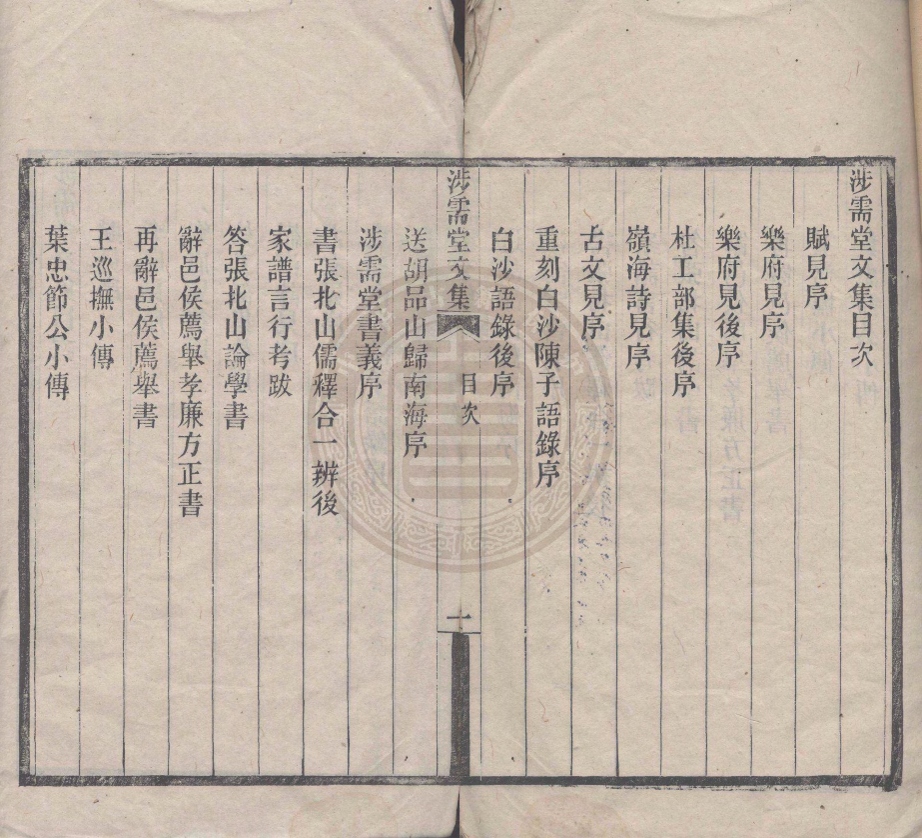 涉需堂文集目次
賦見序
樂府見序
樂府見後序
杜工部集後序
嶺海詩見序
古文見序
重刻白沙陳子語錄序
白沙語錄後序
涉需堂文集 目次 一
送胡品山歸南海序
涉需堂書義序
書張北山儒釋合一辨後
家譜言行考跋
答張北山論學書
辭邑侯薦舉孝廉方正書
再辭邑侯薦舉書
王巡撫小傳
葉忠節公小傳